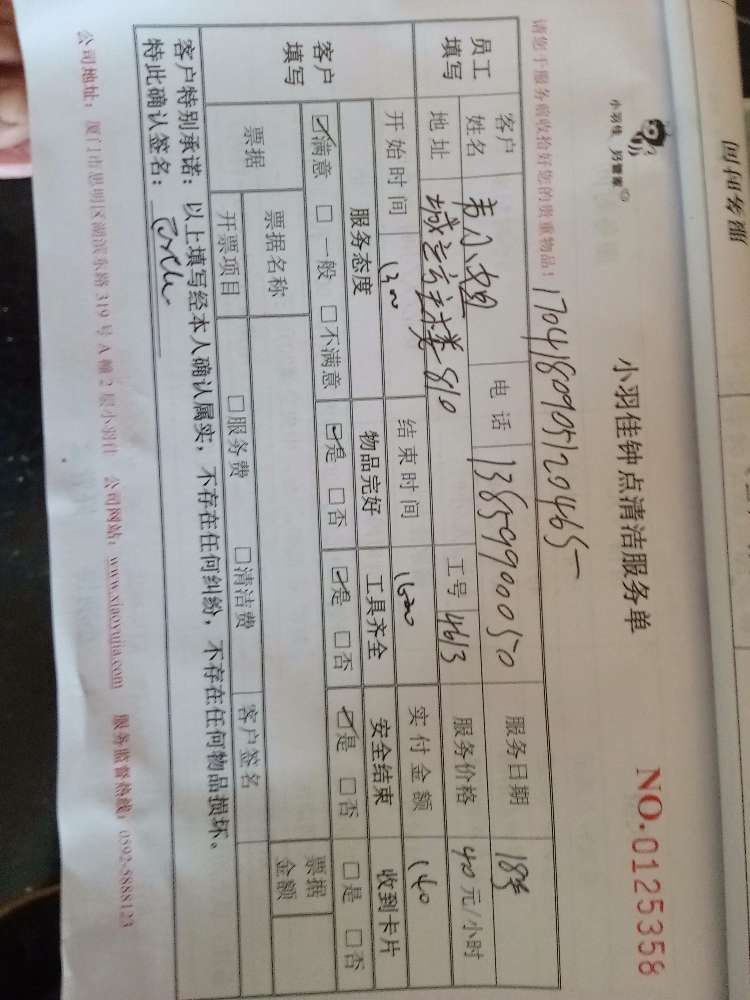 回和务部
小羽佳 好管家
小羽佳钟点清洁服务单
NO.0125358
请您于服务前收拾好您的贵重物品!
1704180905120465
员工填写
客户姓名 小姐 电话 13859900050 服务日期 18
地址 810 工号 4613 服务价格 40 元/小时
开始时间 1300 结束时间 1600 实付金额 140
客户填写
服务态度 物品完好 工具齐全 安全结束 收到卡片
☑满意 □一般 □不满意 ☑是 □否 ☑是 □否 ☑是 □否 □是 □否
票据 票据名称 票据金额
开票项目 □服务费 □清洁费 客户签名
客户特别承诺:以上填写经本人确认属实,不存在任何纠纷,不存在任何物品损坏。
特此确认签名:
公司地址:厦门市思明区湖滨东路319号A幢2层小羽佳 公司网站:www.xiaoyujia.com 服务监督热线:0592-5888123